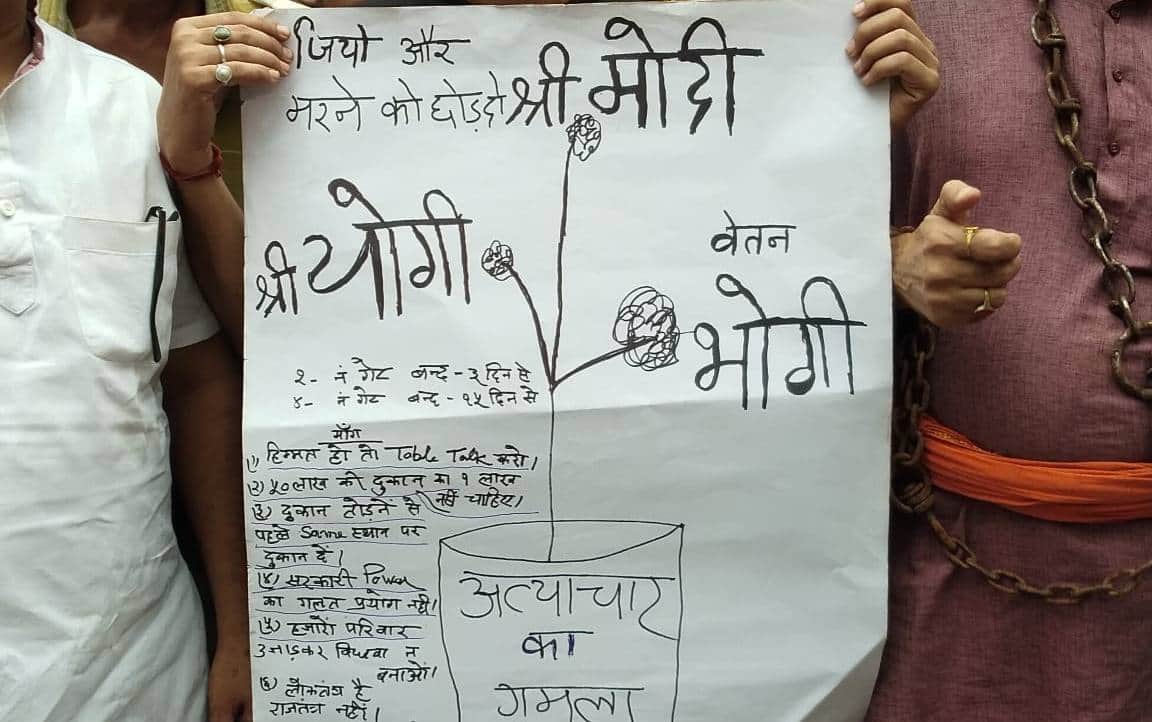 जियो और
मरने को छोड़दो श्री मोदी
श्री योगी
वेतन
भोगी
२- नं गेट बन्द - ३ दिन से
४- नं गेट बन्द - १५ दिन से
माँग
(१) हिम्मत हो तो Table Talk करो।
(२) ५० लाख की दुकान का १ लाख
नहीं चाहिए।
(३) दुकान तोड़ने से
पहले Same स्थान पर
दुकान दें।
(४) सरकारी Power
का गलत प्रयोग नहीं।
(५) हजारों परिवार
उजाड़कर विधवा न
बनाओं।
(६) लोकतंत्र है
राजतंत्र नहीं।
अत्याचार
का
गमला